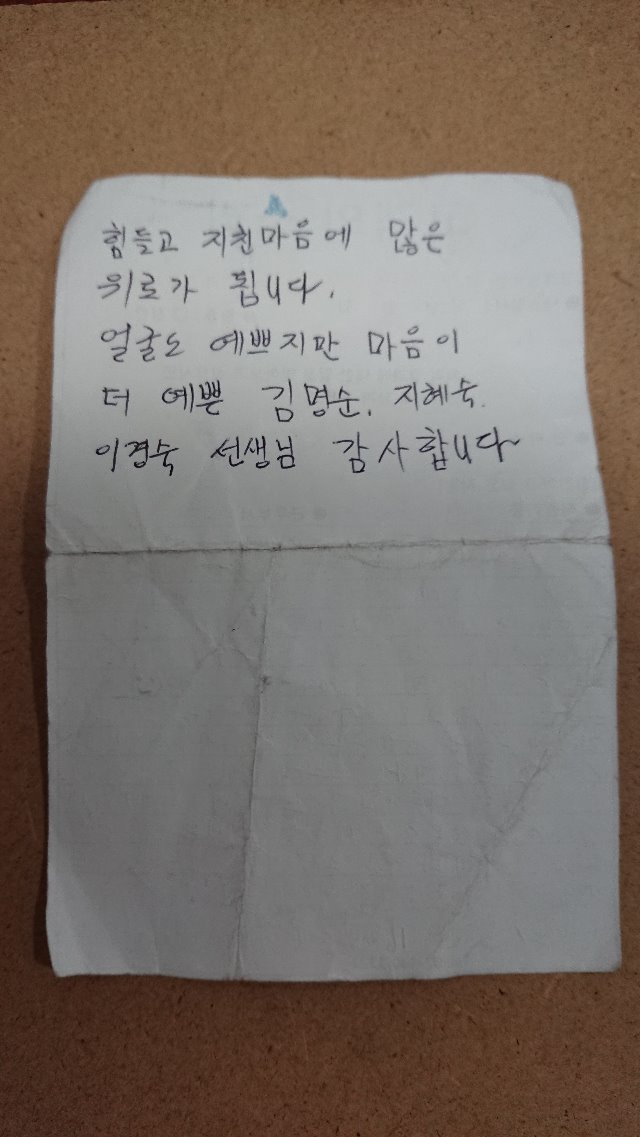 힘들고 지친마음에 많은
위로가 됩니다.
얼굴도 예쁘지만 마음이
더 예쁜 김명순, 지혜숙.
이경숙 선생님 감사합니다